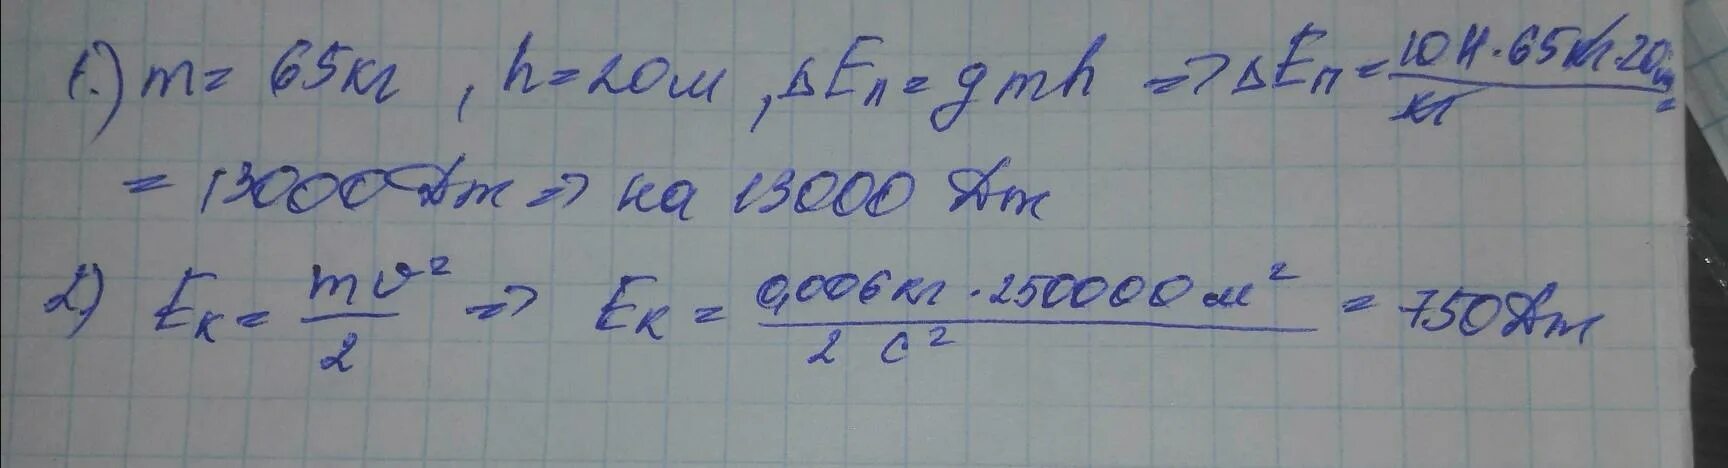 1.) m = 65кг, h = 20м, ΔEп = gmh => ΔEп = 10 Н · 65 кг · 20 м / кг =
= 13000 Дж => на 13000 Дж
2) Eк = mv² / 2 => Eк = 0,006кг · 250000 м² / 2 с² = 750 Дж